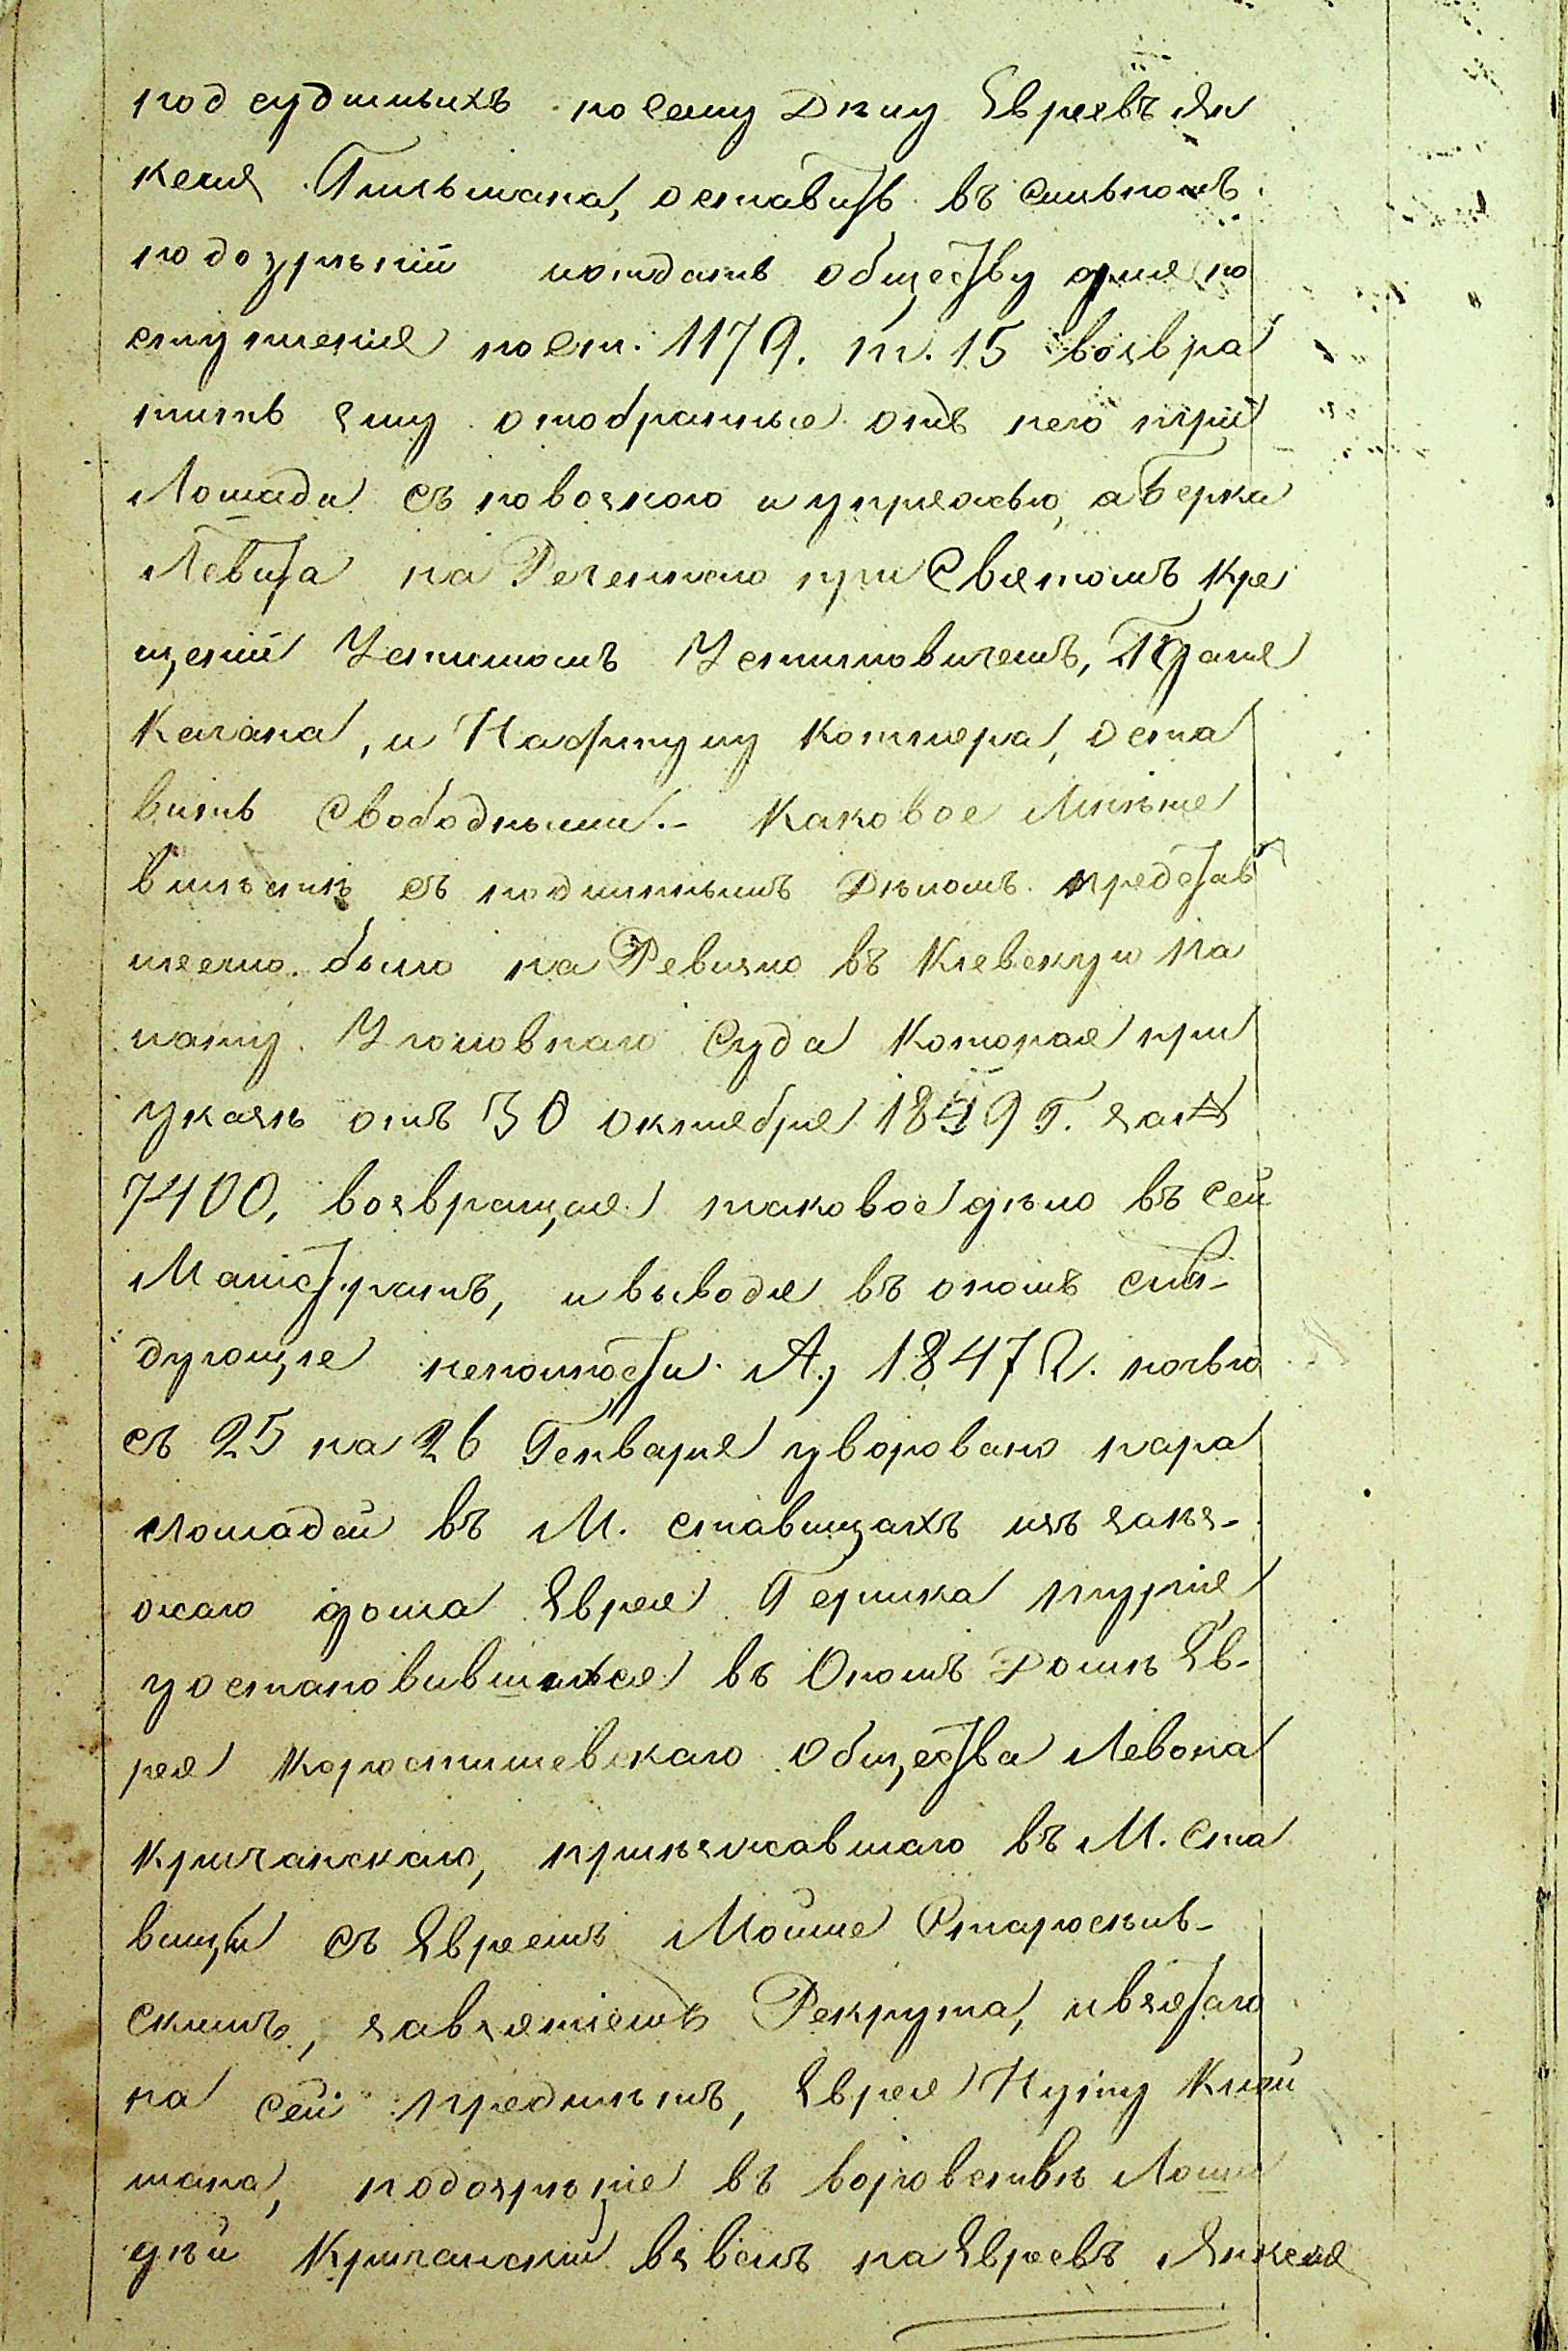 подсудимыхъ посему Дѣлу Евреевъ Ян
келя Гитьмана, оставить въ сильномъ
подозрѣніи иотдать обществу для по
ступленія пост. 1179. т. 15 возвра
тить ему отобранные отъ него три
Лошади съ повозкою и упряжью, а Берка
Левита на Реченнаго при Святомъ Кре
щеніи Устимомъ Устимовичемъ,
Кагана, и Нафтулу Котляра, оста
вить Свободными.- Каковое Мнѣніе
вмѣстѣ съ подлиннымъ Дѣломъ представ
леемо было на Ревизію въ Кіевскую Па
лату Уголовнаго Суда Которая при
указѣ отъ 30 октября 1849 г. за №
7400, возвращая таковое дѣло въ сей
Магистратъ, и выводя въ ономъ слѣ-
дующіе неполности. А, 1847 г. ночью
съ 25 на 26 Генваря уворовано пара
лошадей въ М. ставищахъ изъ заѣз-
жаго дома Еврея Гершка
установившихся въ Ономъ Домѣ Ев-
рея Коростишевскаго Общества Левона
Кричанскаго, пріѣзжавшаго въ М. Ста
вищи съ Евреемъ Мойше Старосѣль-
скимъ, завзятіемъ Рекрута, ивзятаго
на сей предмѣтъ, Еврея Нухиму
мана, подозрѣніе въ воровствѣ Лоша
дѣй Кричанскій взвелъ на Евреевъ Янкеля